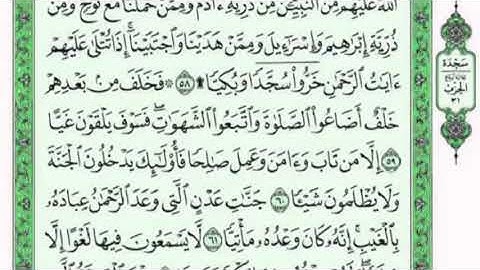 ٱللَّهُ عَلَيۡهِم مِّنَ ٱلنَّبِيِّـۧنَ مِن ذُرِّيَّةِ ءَادَمَ وَمِمَّنۡ حَمَلۡنَا مَعَ نُوحٖ وَمِن
ذُرِّيَّةِ إِبۡرَٰهِيمَ وَإِسۡرَٰٓءِيلَ وَمِمَّنۡ هَدَيۡنَا وَٱجۡتَبَيۡنَآۚ إِذَا تُتۡلَىٰ عَلَيۡهِمۡ
ءَايَٰتُ ٱلرَّحۡمَٰنِ خَرُّواْۤ سُجَّدٗاۤ وَبُكِيّٗا ۩ ٥٨ ۞ فَخَلَفَ مِنۢ بَعۡدِهِمۡ
خَلۡفٌ أَضَاعُواْ ٱلصَّلَوٰةَ وَٱتَّبَعُواْ ٱلشَّهَوَٰتِۖ فَسَوۡفَ يَلۡقَوۡنَ غَيًّا
٥٩ إِلَّا مَن تَابَ وَءَامَنَ وَعَمِلَ صَٰلِحٗا فَأُوْلَٰٓئِكَ يَدۡخُلُونَ ٱلۡجَنَّةَ
وَلَا يُظۡلَمُونَ شَيۡـٔٗا ٦٠ جَنَّٰتِ عَدۡنٍ ٱلَّتِي وَعَدَ ٱلرَّحۡمَٰنُ عِبَادَهُۥ
بِٱلۡغَيۡبِۚ إِنَّهُۥ كَانَ وَعۡدُهُۥ مَأۡتِيّٗا ٦١ لَّا يَسۡمَعُونَ فِيهَا لَغۡوًا إِلَّا
سَجْدَة
الحِزْب
٣١